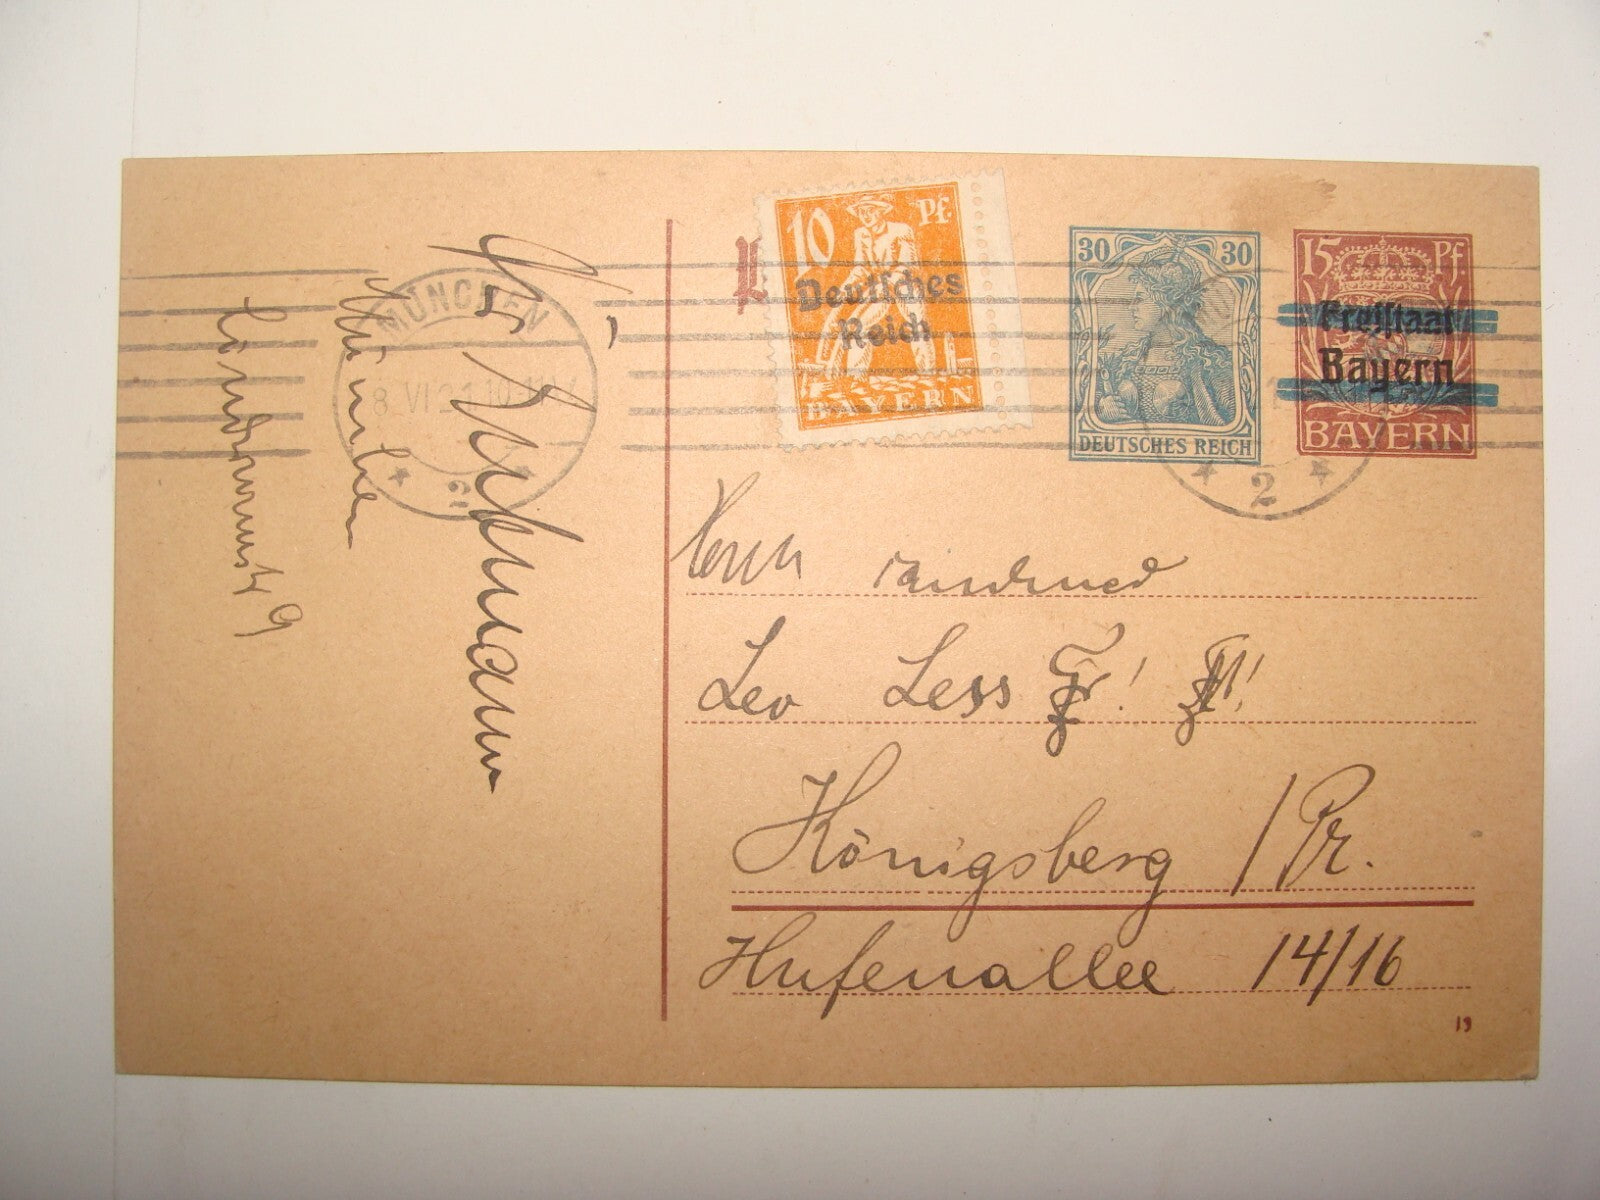 10 Pf.
Deutsches
Reich
BAYERN
30 30
DEUTSCHES REICH
15 Pf
Freistaat
Bayern
BAYERN
MÜNCHEN
8 VI 21
2
2
München
9
Herrn
Leo Less
Königsberg / Pr.
Hufenallee 14/16
19